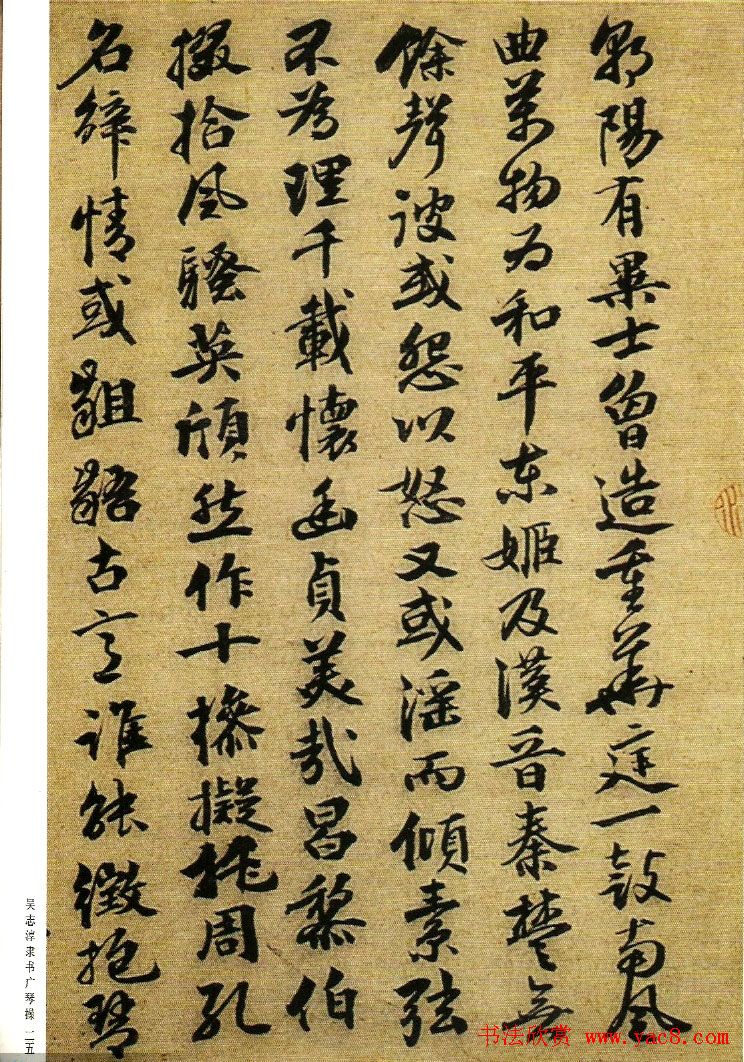 陽有異士曾造重華庭一鼓南風
曲萬物为和平東姬及漢晉秦楚無
餘聲詖或怨以怒又或淫而傾素弦
不為理千載懷幽貞美哉昌黎伯
掇拾風騷英頎然作十操擬托周孔
名辭情或齟齬古意誰能徵抱琴
吴志淳隶书广琴操 二五
书法欣赏 www.yac8.com